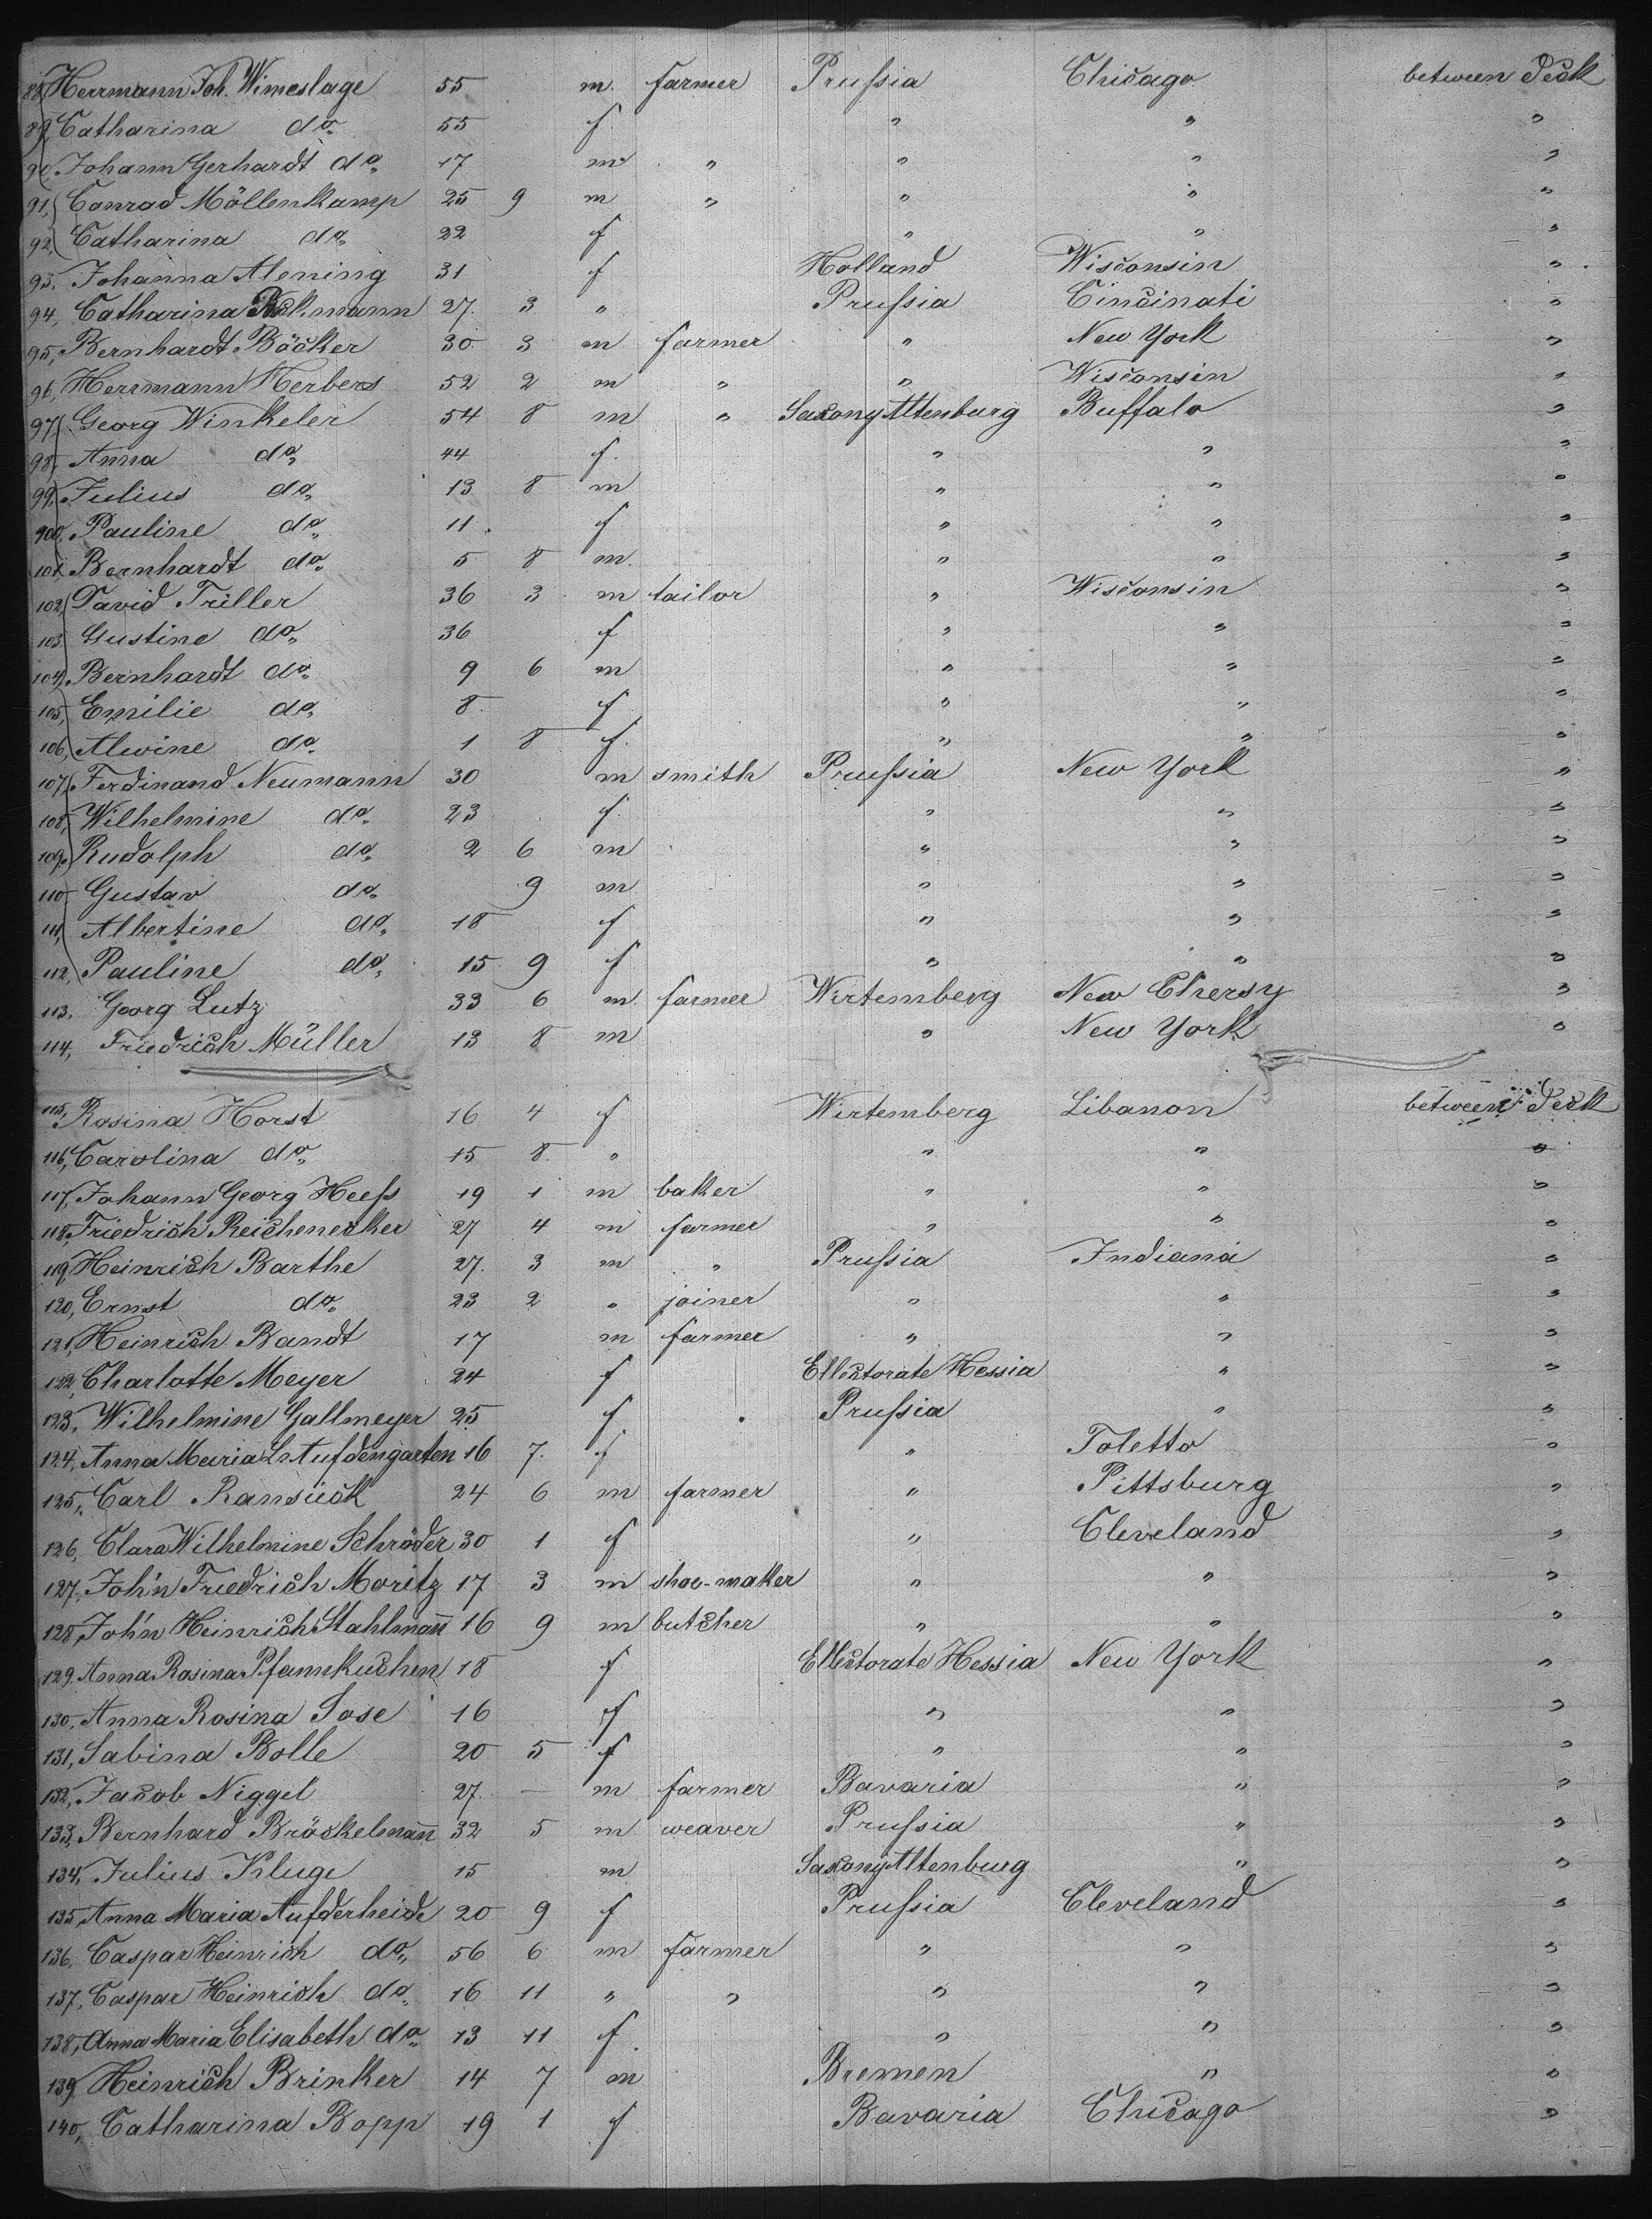 88, Herrmann Joh. Wimeslage 55 m. farmer Prußia Chicago between Deck
89, Catharina do. 55 f. " " "
90, Johann Gerhardt do. 17 m " " " "
91, Conrad Möllenkamp 25 9 m " " " "
92, Catharina do. 22 f " " "
93, Johanna Alening 31 f Holland Wisconsin "
94, Catharina 27. 3 " Prußia Cincinati "
95, Bernhardt Böcker 30. 3 m farmer " New York "
96, Herrmann Herbers 52 2 m " " Wisconsin "
97, Georg Winkeler 54 8 m " Saxony Altenburg Buffalo "
98, Anna do. 44 f. " " "
99, Julius do. 13 8 m " " "
900, Pauline do. 11. f " " "
101, Bernhardt do. 5 8 m. " " "
102, David Triller 36 3 m tailor " Wisconsin "
103 Gustine do. 36 f " " "
104, Bernhardt do. 9 6 m " " "
105, Emilie do. 8. f " " "
106, Alwine do. 1 8 f. " " "
107, Ferdinand Neumann 30 m smith Prußia New York "
108, Wilhelmine do. 23 f. " " "
109, Rudolph do. 2 6 m " " "
110 Gustav do. 9 m " " "
111, Albertine do. 18 f " " "
112, Pauline do. 15 9 f " " "
113, Georg Lutz 33 6 m. farmer Wirtemberg New Chersy "
114, Friedrich Müller 13 8 m " New York "
115, Rosina Horst 16 4 f Wirtemberg Libanon between Deck
116, Carolina do. 15 8. " " " "
117, Johann Georg Heeß 19 1 m baker " " "
118, Friedrich Reichenecker 27 4 m farmer " " "
119, Heinrich Barthe 27. 3 m " Prußia Indiana "
120, Ernst do. 23 2 " joiner " " "
121, Heinrich Bandt 17 m farmer " " "
122, Charlotte Meyer 24 f Ellectorate Hessia " "
123, Wilhelmine Gallmeyer 25 f Prußia " "
124, Anna Maria Ls Aufdengarten 16 7. f " Toletto "
125, Carl Ransiick 24 6 m farmer " Pittsburg "
126, Clara Wilhelmine Schröder 30 1 f " Cleveland "
127, Joh'n Friedrich Moritz 17 3 m shoe-maker " " "
128, Joh'n Heinrich Stahlmañ 16 9 m butcher " " "
129. Anna Rosina Pfannkuchen 18 f Ellectorate Hessia New York "
130, Anna Rosina Sose 16 f " " "
131, Sabina Bolle 20 5 f " " "
132, Jacob Niggel 27. — m farmer Bavaria " "
133, Bernhard Bröckelmañ 32 5 m weaver Prußia " "
134, Julius Kluge 15 m Saxony Altenburg " "
135, Anna Maria Aufderheide 20 9 f Prußia Cleveland "
136, Caspar Heinrich do. 56 6 m farmer " " "
137, Caspar Heinrich do. 16 11 " " " " "
138, Anna Maria Elisabeth do. 13 11 f. " " "
139, Heinrich Brinker 14 7 m Bremen " "
140, Catharina Bopp 19 1 f Bavaria Chicago "